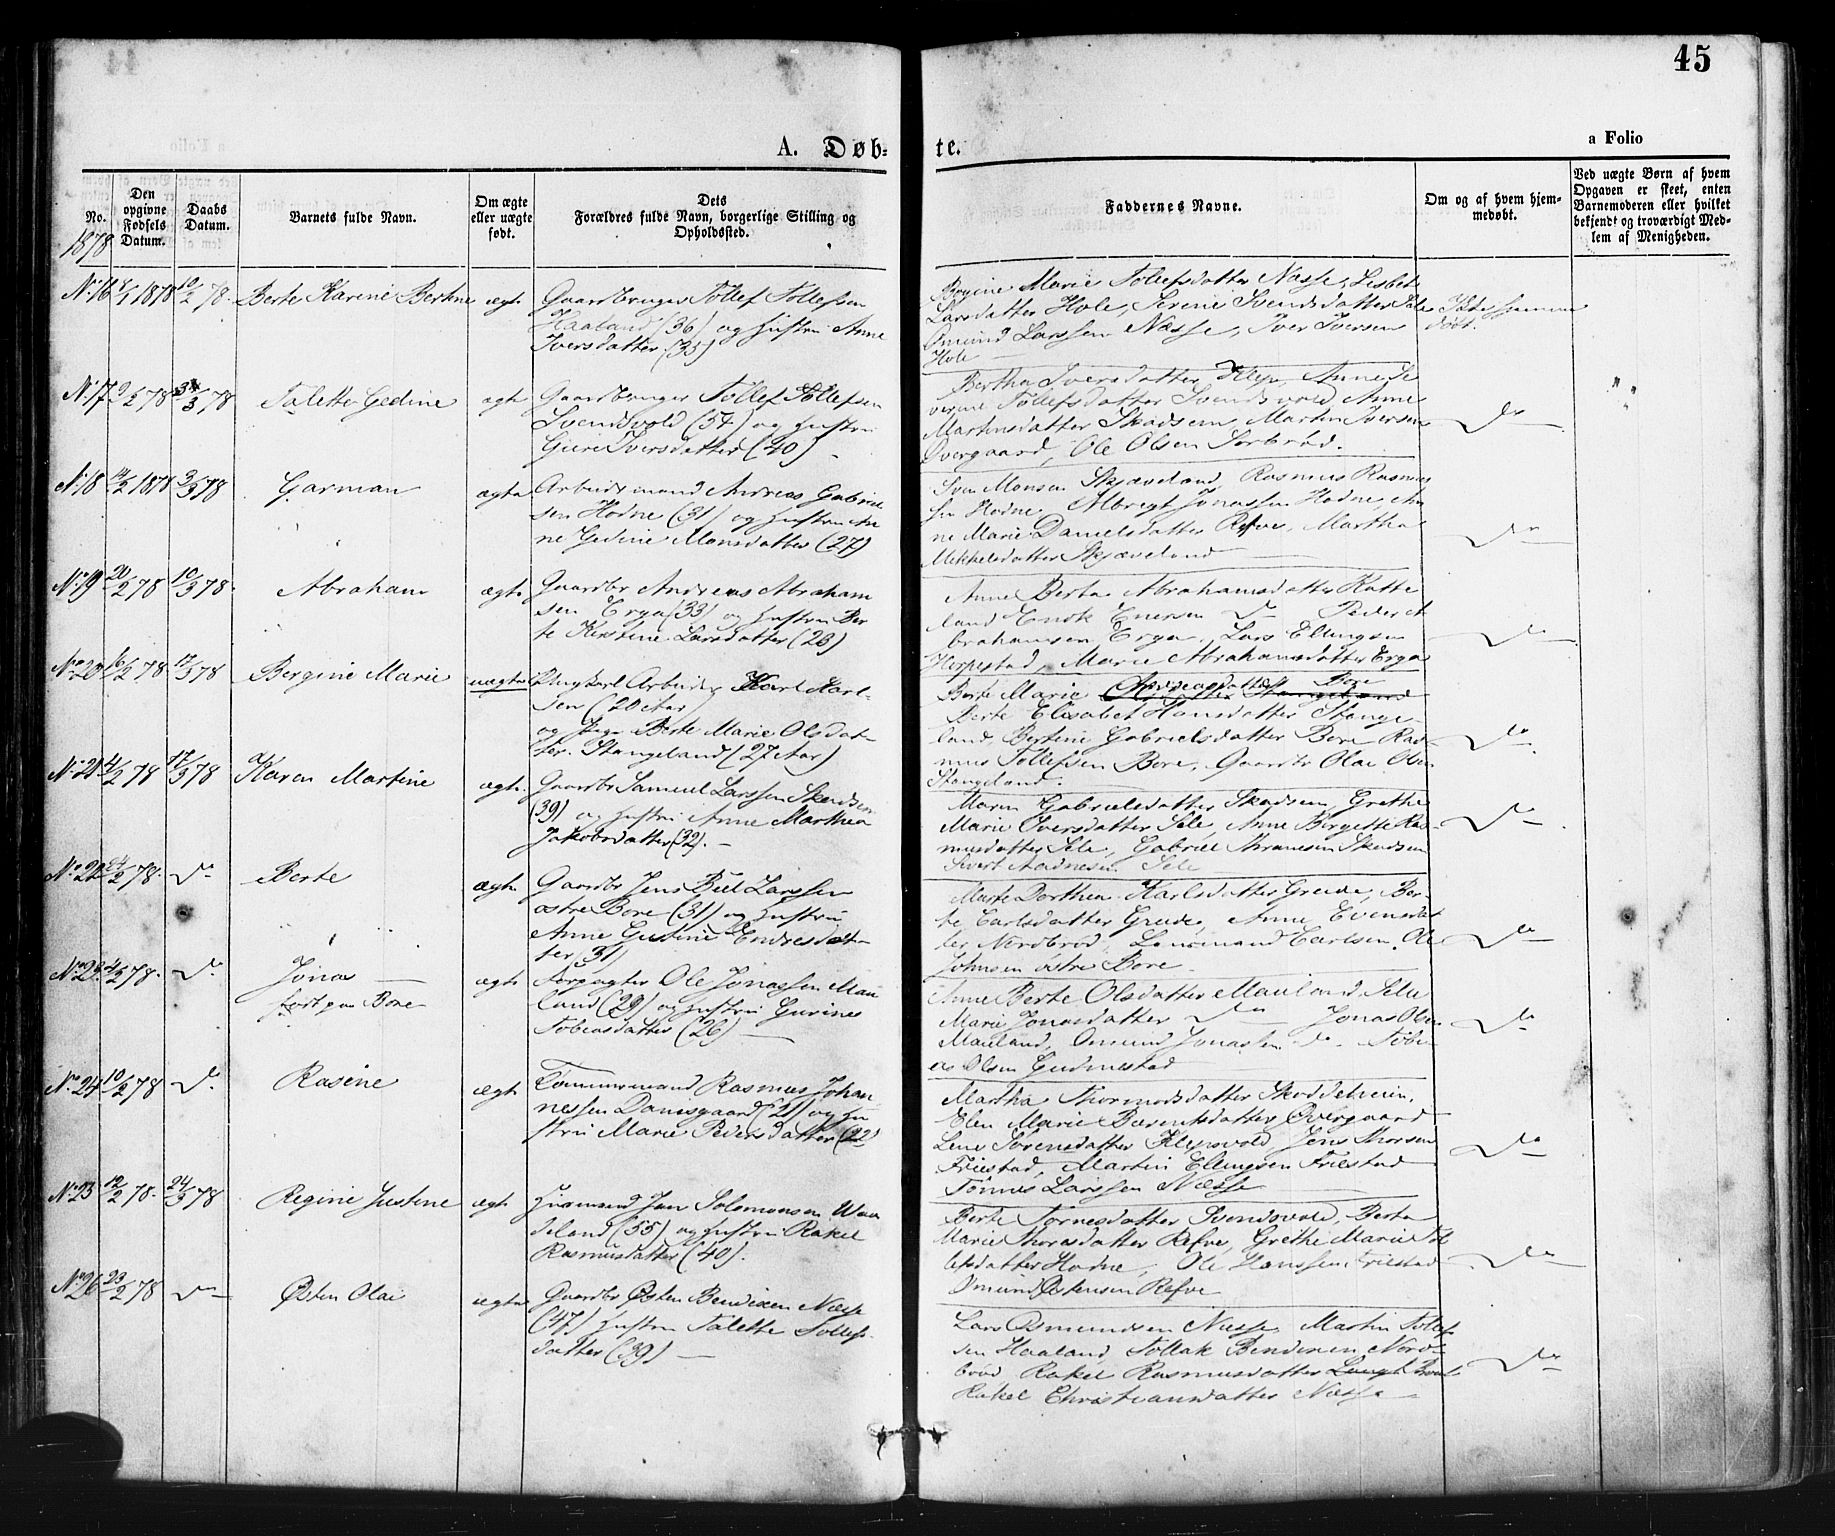 45
A. Døb-
te.
a Folio
No.
1878
Den opgivne Fødsels Datum.
Daabs Datum.
Barnets fulde Navn.
Om ægte eller uægte født.
Dets
Forældres fulde Navn, borgerlige Stilling og Opholdssted.
Faddernes Navne.
Om og af hvem hjemmedøbt.
Ved uægte Børn af hvem Opgaven er skeet, enten Barnemoderen eller hvilket bekjendt og troværdigt Medlem af Menigheden.
No 16 1878 10/2 78. Berte Karine Bertine ægte
Gaardbruger Tollef Tollefsen
Haaland (36) og Hustru Anne
Iversdatter (35)
Marie Tollefsdatter Næsse, Lisbet
Larsdatter Hole, Serine Svendsdatter
Omund Larssen Næsse, Iver Iversen
Hole
døbt.
No 17 9/2 78 3/3 78 Talette Gedine ægte
Gaardbruger Tollef Tollefsen
Svendsvold (54) og Hustru
Iversdatter (40)
Bertha Iversdatter Klep, Anne Se
verine Tollefsdatter Svendsvold Anne
Martinsdatter Skadsem, Martin Iversen
Øvergaard, Ole Olsen Sørbrød.
Do
No 18 14/2 1878 3/3 78 Garman ægte
Arbeidsmand Andreas Gabriel
sen Hodne (31) og Hustru An
ne Gedine Monsdatter (27)
Sven Monsen Skjæveland, Rasmus Rasmus
sen Hodne, Albregt Jonassen Hodne, An
ne Marie Danielsdatter Refve, Martha
Mikkelsdatter Skjæveland
Do
No 19 20/2 78 10/3 78. Abraham ægte
Gaardbr Andreas Abraham
sen Erga (33) og Hustru Ber
te Kirstine Larsdatter (23)
Anne Berta Abrahamsdatter Hatte
land Do Peder A
brahamsen Erga, Lars Ellingsen
Horpestad, Marie Abrahamsdatter Erga
Do
No 20 16/2 78 17/3 78 Bergine Marie uægte
Ungkarl Arbeider Karl Karl-
sen (20 Aar)
og Pige Berte Marie Olsdat-
ter Stangeland (27 Aar)
Berte Marie Bore
Berte Elisabet Hansdatter Stange-
land, Bertine Gabrielsdatter Bore Ras-
mus Tollefsen Bore, Gaardbr Olai Olsen
Stangeland.
Do
No 21 78 17/3 78 Karen Martine ægte
Gaardbr Samuel Larssen Skadsem
(39) og Hustru Anne Marthea
Jakobsdatter (32). —
Maren Gabrielsdatter Skadsem, Grethe
Marie Iversdatter Sele, Anne Birgette Ras-
musdatter Sele, Gabriel Thranesen Skadsem
Sivert Aadnesen Sele
Do
No 22 24/2 78. Do Berte ægte
Gaardbr Jens Larssen
østre Bore (31) og Hustru
Anne Gustine Endresdat-
ter 31)
Marte Dorthea Karlsdatter Grude, Ber-
te Carlsdatter Grude, Anne Evensdat
ter Nordbrød, Carlsen, Ole
Johnsen østre Bore.
Do
No 23 78. Do Jonas
født paa Bore
ægte
Forpagter Ole Jonassen Mau
land (29) og Hustru Gurine
Tobiasdatter (26) —
Anne Berte Olsdatter Mauland
Marie Jonasdatter Do Jonas Olsen
Mauland, Omund Jonassen do Tobi-
as Olsen Gudmestad
Do
No 24 10/2 78 Do Rasine ægte
Tømmermand Rasmus Johan
nessen Damsgaard (21) og Hu
stru Marie Pedersdatter (22)
Martha Thormodsdatter
Elen Marie Berentsdatter Øvergaard
Lene Sørensdatter Klepsvold Jens Thorsen
Friestad, Martin Ellingsen Friestad
Tønnes Larssen Næsse
Do
No 25 12/2 78. 24/3 78 Regine Justine ægte
Husmand Jan Salomonsen
land (55) og Hustru Rakel
Rasmusdatter (40).
Berte Svendsvold, Berta
Marie Thorsdatter Refve, Grethe Marie
datter Hodne, Ole Hanssen Friestad
Omund Østensen Refve
Do
No 26 23/2 78 Do Østen Olai ægte
Gaardbr Østen Bendixen Næsse
(47) Hustru Talette Tollefs-
datter (39) —
Lars Osmundsen Næsse, Martin Tollef
sen Haaland, Tollak Bendixen Nord-
brød Rakel Rasmusdatter
Rakel Christiansdatter Næsse
Do